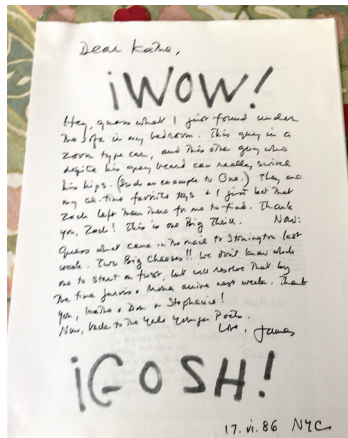 Dear Katha,
¡WOW!
Hey, guess what I just found under
the sofa in my bedroom. This guy in a
zoom type car, and this other guy who
despite his gray beard can really swivel
his hips. (Such an example to One.) They are
my all-time favorite toys + I just bet that
Zach left them there for me to find. Thank
you, Zach! This is one Big Thrill. Now:
Guess what came in the mail to Stonington last
week. Two Big Cheeses!! We don't know which
one to start on first, but will resolve that by
the time Jarvis + Mona arrive next week. Thank
you, Katha + Don + Stephanie!
Now, back to the Yale Younger Poets.
Love, James
¡GOSH!
17.vi.86 NYC